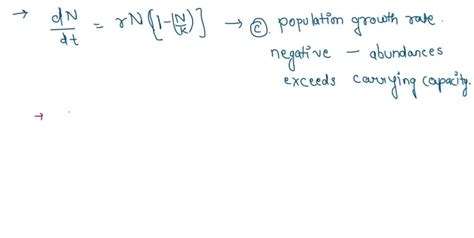 → dN/dt = rN{1-(N/K)] → ⓒ population growth rate
negative – abundances
exceeds carrying capacity.
→